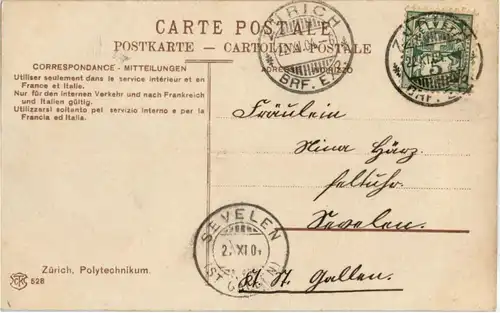 CARTE POSTALE
POSTKARTE - CARTOLINA POSTALE
CORRESPONDANCE - MITTEILUNGEN
Utiliser seulement dans le service intérieur et en
France et Italie.
Nur für den internen Verkehr und nach Frankreich
und Italien gültig.
Utilizzarsi soltanto pel servizio interno e per la
Francia ed Italia.
ZÜRICH
BRF. E.
Fräulein
Nina Härz.
Sevelen.
SEVELEN
XI 0
(ST. GALLEN)
Kt. St. Gallen.
Zürich, Polytechnikum.
528